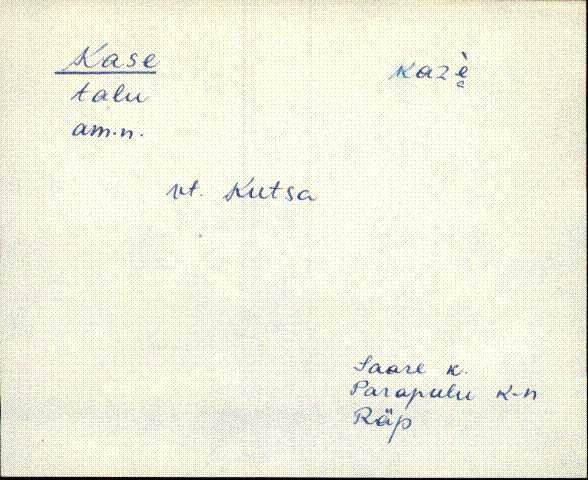 Kase kazè̬
talu
am.n.
vt. Kutsa
Saare k.
Parapulu k-n
Räp